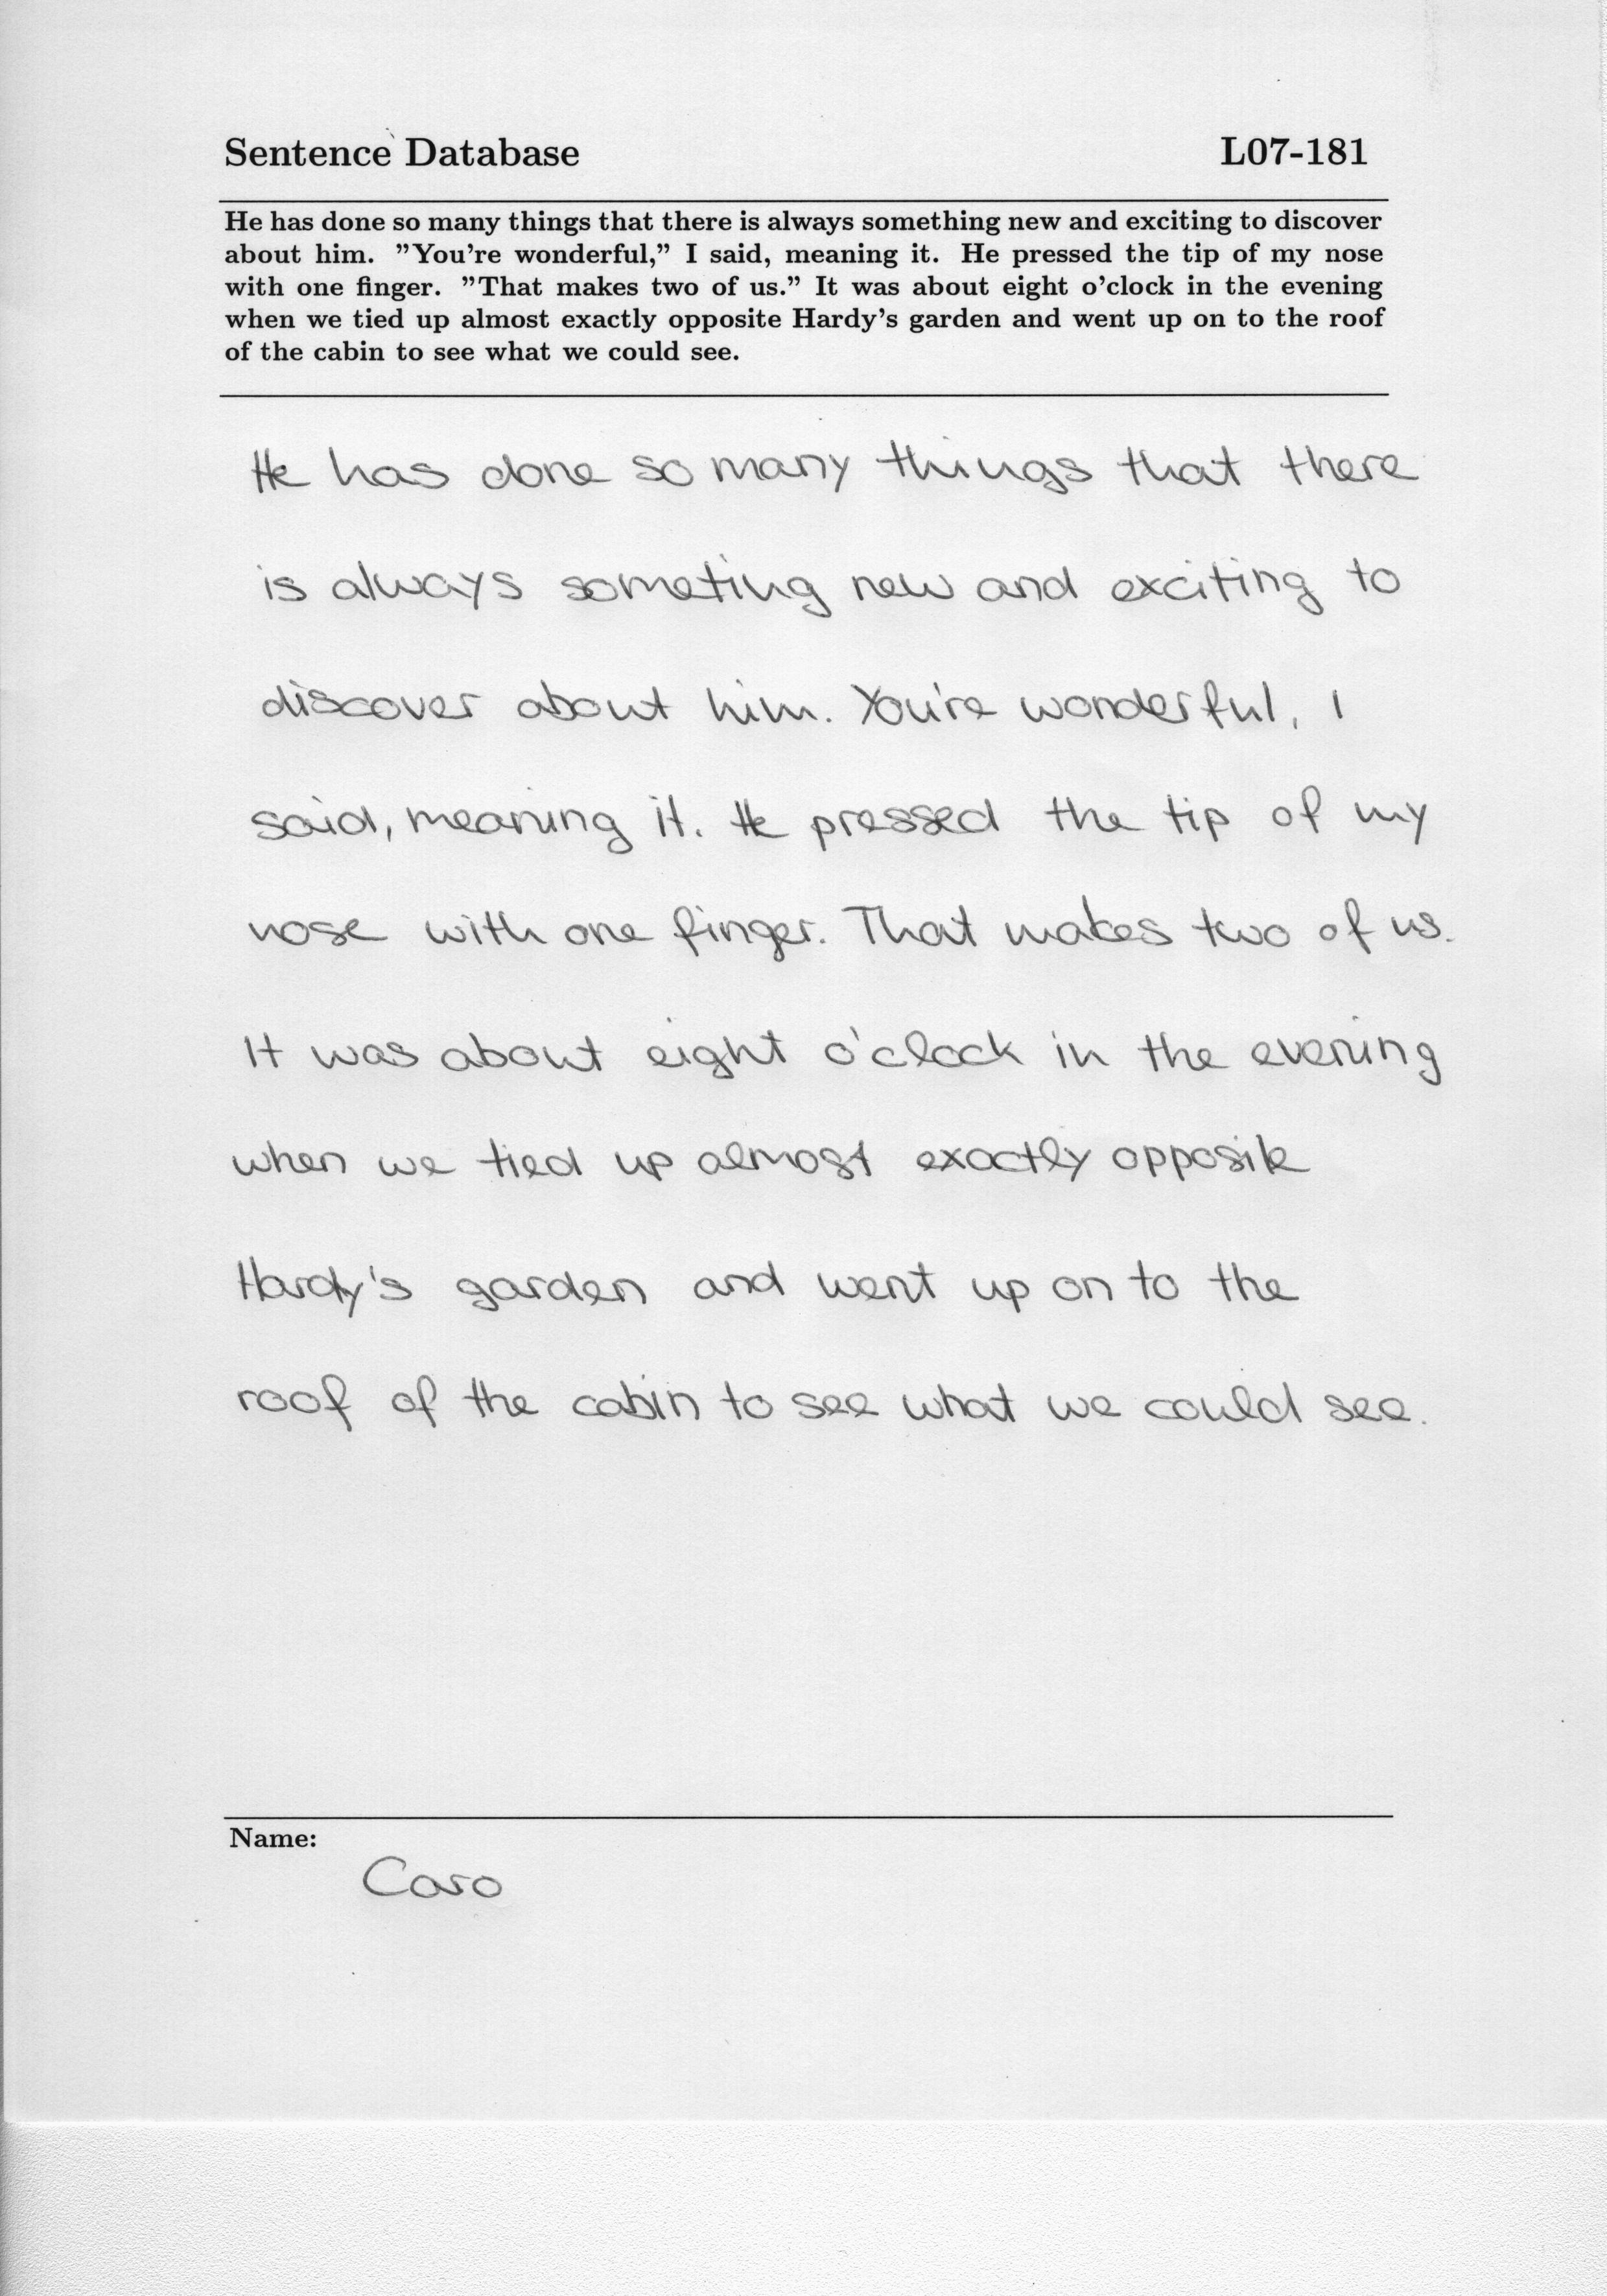 Sentence Database L07-181
He has done so many things that there is always something new and exciting to discover
about him. "You're wonderful," I said, meaning it. He pressed the tip of my nose
with one finger. "That makes two of us." It was about eight o'clock in the evening
when we tied up almost exactly opposite Hardy's garden and went up on to the roof
of the cabin to see what we could see.
He has done so many things that there
is always someting new and exciting to
discover about him. You're wonderful, I
said, meaning it. He pressed the tip of my
nose with one finger. That makes two of us.
It was about eight o'clock in the evening
when we tied up almost exactly opposite
Hardy's garden and went up on to the
roof of the cabin to see what we could see.
Name:
Caro